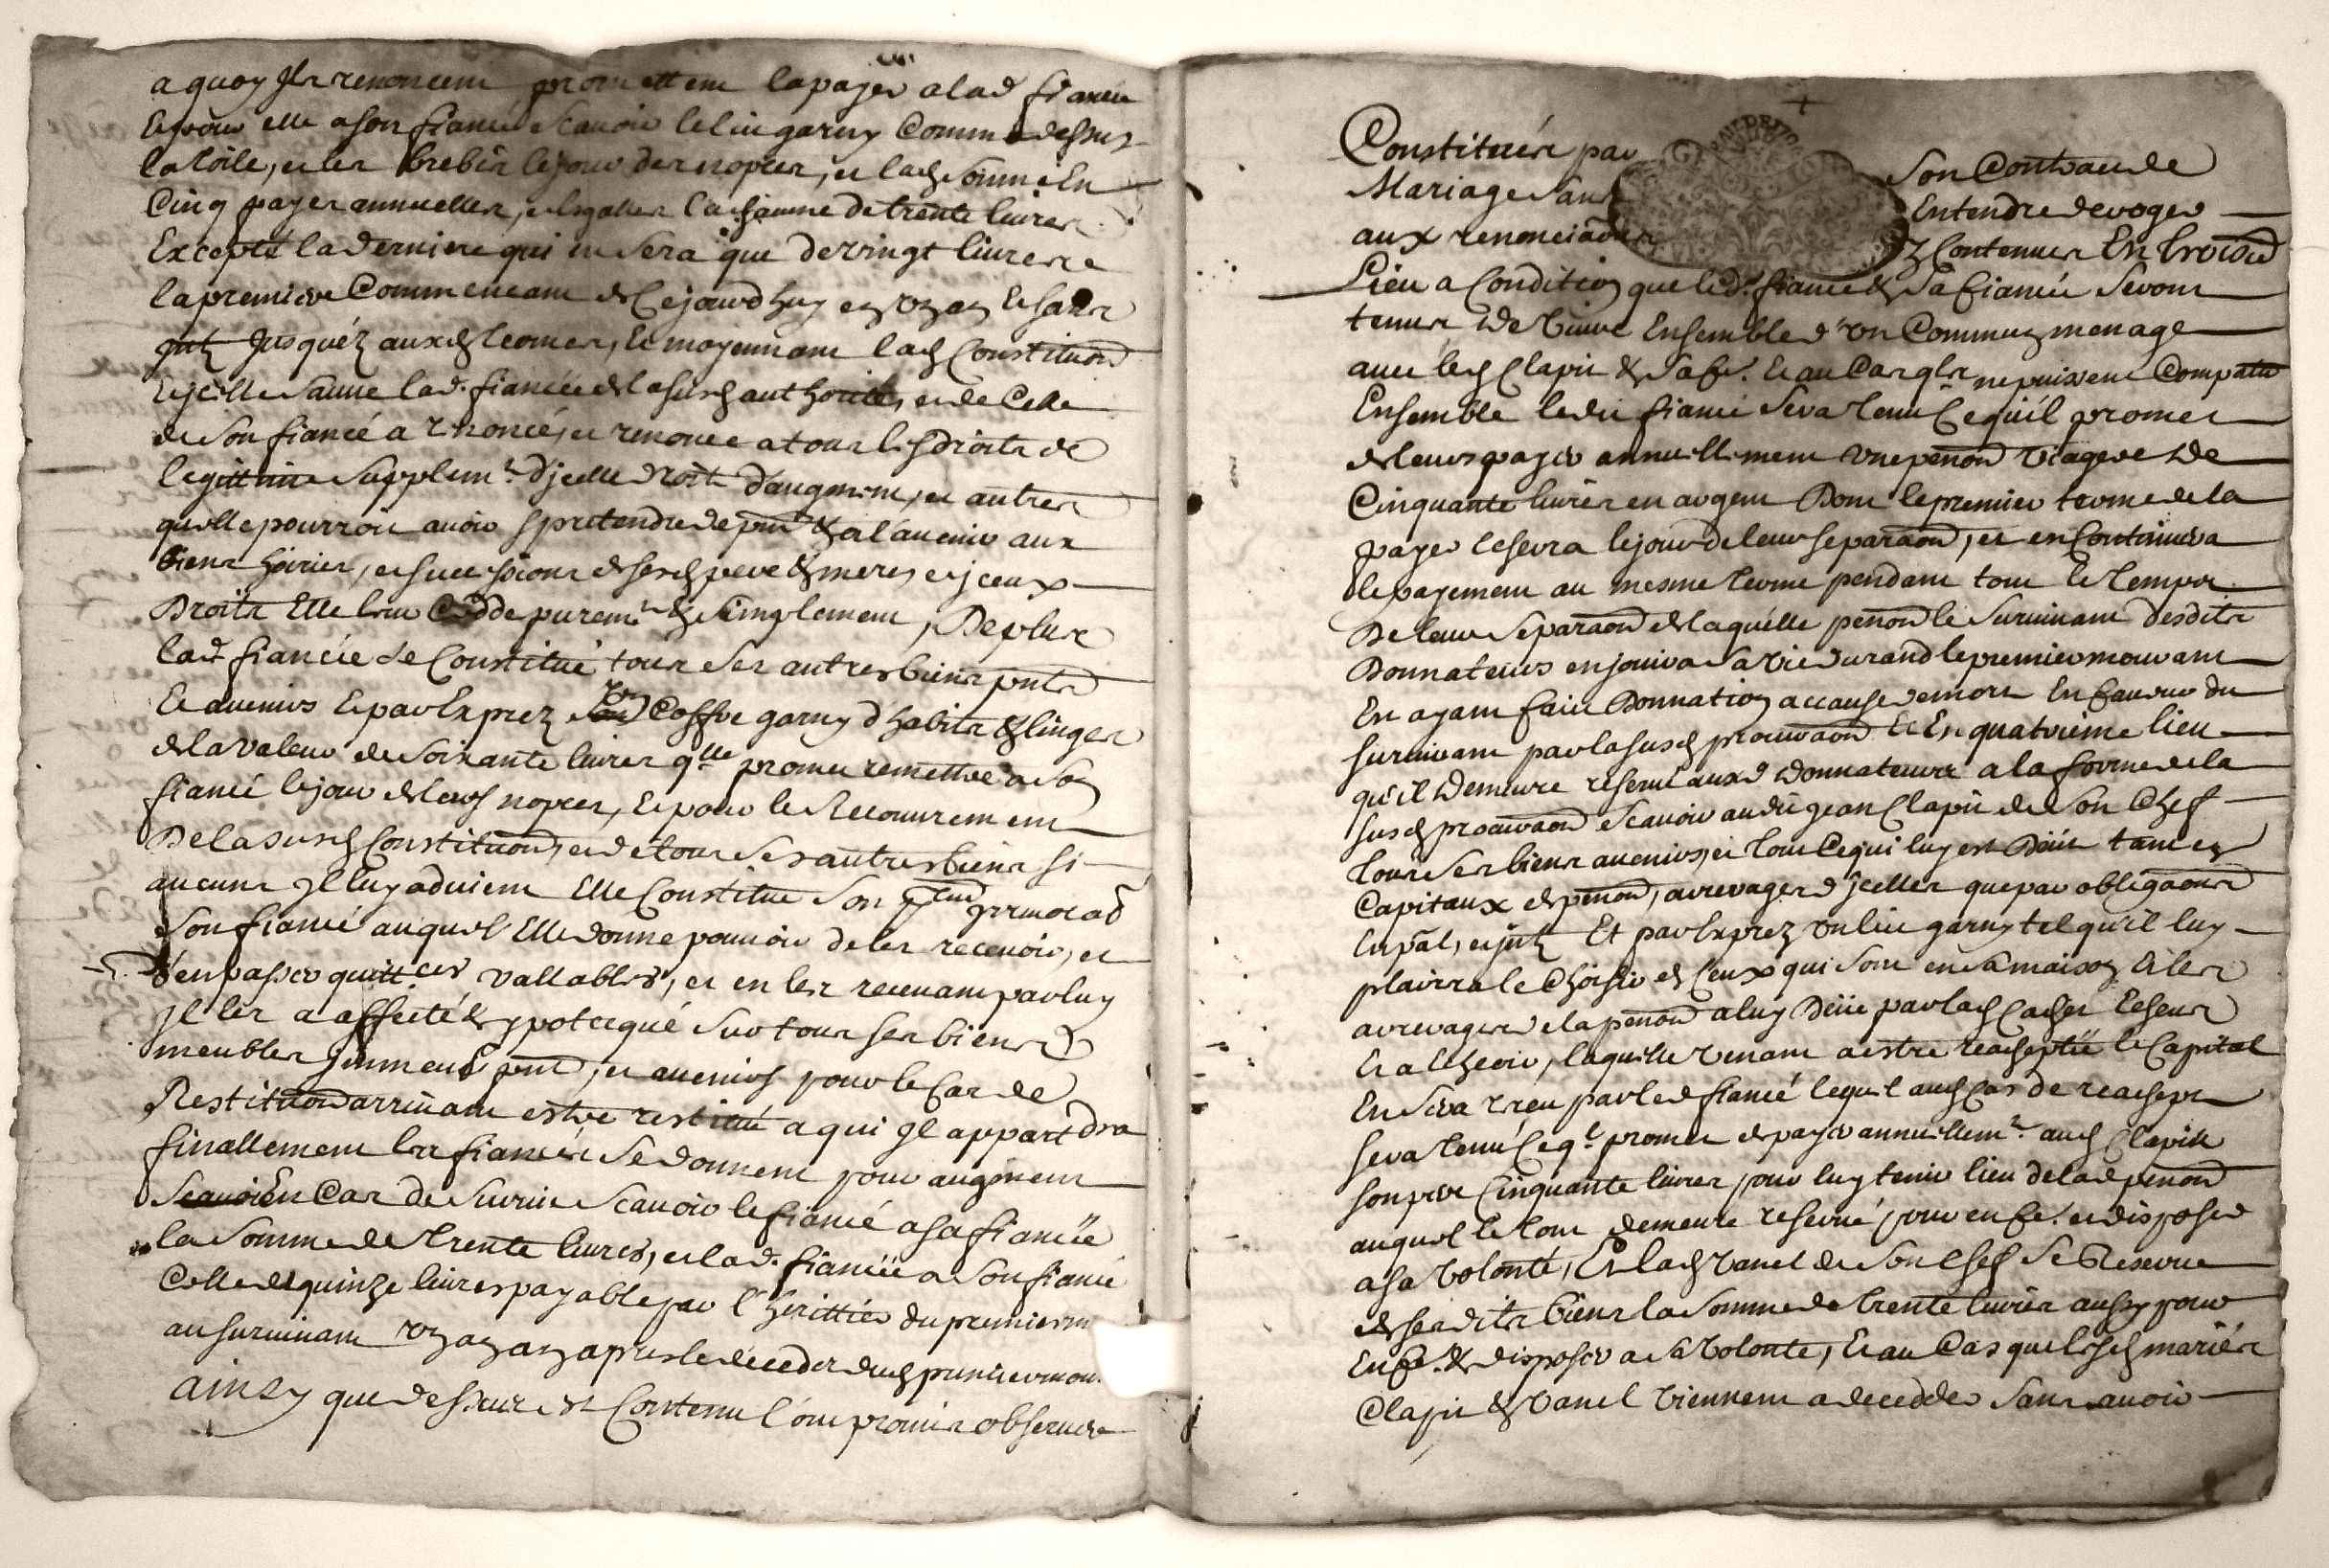 a quoy Ils renoncent promettent la payer a lad fiancée
et pour elle a son fiancé Scavoir le lin garny Comme dessus
la toile, et les brebis le jour des nopces, et lad Somme En
Cinq payes annuelles, et egalles lachaune de trente livres
Excepté la derniere qui ne Sera que de vingt livres
la premiere Commenceant de Cejourd'huy en un an Et sans
jnt Jusquéz auxd termes, Et moyennant lad Constituon
lad. fiancée de la susd authorité, et de Celle
de Son fiancé a renoncé, et renonce a tous les Droits de
legittime Supplemt d'jcelle droit d'augment, et autres
qu'elle pourroit avoir & pretendre de pnt & a l'avenir aux
biens hoiries, et successions de sesd pere & meres et jceux
Droits Elle leur Cedde puremt & simplement, De plus
lad fiancée se Constitue tous Ses autres biens pnts
Et avenirs Et par Exprez Un Coffre garny d'habits & linges
de la valeur de Soixante livres qlle promet remettre a Son
fiancé le jour de leurs nopces, Et pour le Recouvrement
De la Susd Constituon, et de tous Ses autres biens Si
aucuns Il luy advient Elle Constitue Son
Son fiancé auquel Elle donne pouvoir de les recevoir, et
d'en passer quittces vallables, et en les recevant par luy
Il les a affecté & ypotequé Sur tous Ses biens
meubles Immeubles pnt, et avenirs pour le Cas de
Restituon arrivant estre restitué a qui Il appartdra
finallement les fiancés Se donnent pour augment
En Cas de Survie Scavoir le fiancé a sa fiancée
la Somme de trente livres, et lad. fiancée a Son fiancé
Celle de quinze livres payable par l'herittier du premier m
au Survivant Un an apres le decedés dud premier mou
ainsy que dessus est Contenu l'ont promis observer
Constituée par Son Contract de
Mariage Sans Entendre deroger
aux renonciaons y Contenues En troisie
Lieu a Condition que led. fiancé & Sa fiancée Seront
tenus de vivre Ensemble d'un Commun menage
avec lesd Clapit & Sa fe. Et au Cas qls ne puissent Compatir
Ensemble ledit fiancé Sera tenu Ce qu'il promet
de leur payer annuellement une penon viagere de
Cinquante livres en argent Dont le premier terme de la
paye lesera le jour de leur separaon, et en Continuera
le payement au mesme terme pendant tout le temps
De leur Separaon de laquelle penon le Survivant desdits
Donnateurs en jouira Sa vie durand le premier mourant
En ayant fait Donnation a cause de mort En faveur du
survivant par la susd procuraon Et En quatrieme lieu
qu'il demeure reservé auxd donnateurs a la forme de la
susd procuraon Scavoir audit jean Clapit de Son Chef
tous Ses biens avenirs, et tout Ce qui luy est Deue tant en
Capitaux de penon, arrerages d'jcelles que par obligaons
En pal, et jnt Et par Exprez un lict garny tel qu'il luy
plaira le Choisir de Ceux qui Sont en Sa maison Et les
arrerages de la penon a luy Deue par
laquelle venant a estre reacheptée le Capital
En Sera receu par led fiancé lequel aud Cas de reachept
Sera tenu Ce ql promet de payer annuellemt aud Clapit
Son pere Cinquante livres pour luy tenir lieu de lad penon
auquel le tout demeure reservé pour en fe. et disposer
a Sa volonté, Et lad vanel de Son Chef Se Reserve
de Sesdits biens la Somme de trente livres aussy pour
En fe. & disposer a Sa volonté, Et au Cas que lesd mariés
Clapit & Vanel viennent a decedder Sans avoir